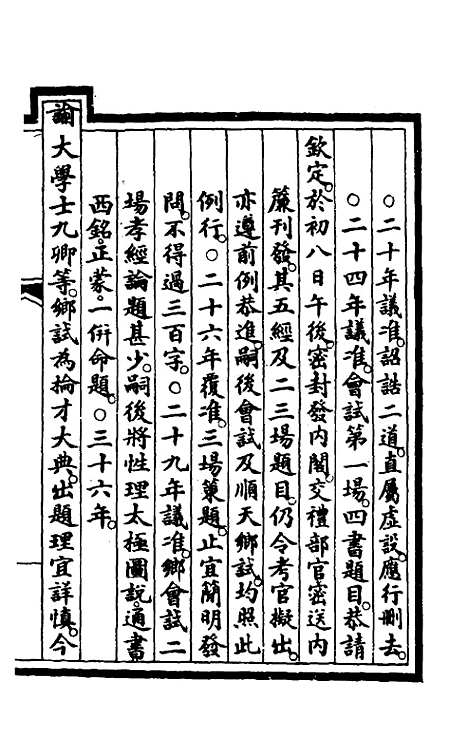 ○二十年議准。詔誥二道。直屬虛設。應行刪去。
○二十四年議准。會試第一場。四書題目。恭請
欽定。於初八日午後。密封發內閣。交禮部官密送內
簾刊發。其五經及二三場題目。仍令考官擬出。
亦遵前例恭進。嗣後會試及順天鄉試。均照此
例行。○二十六年覆准。三場策題。止宜簡明發
問。不得過三百字。○二十九年議准。鄉會試二
場孝經論題甚少。嗣後將性理太極圖說。通書
西銘。正蒙。一併命題。○三十六年。
諭大學士九卿等。鄉試為掄才大典。出題理宜詳慎。今